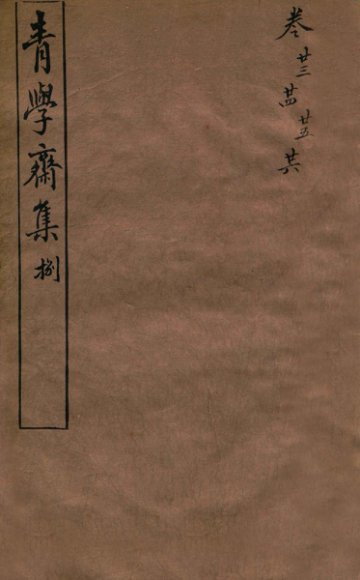 卷廿三廿四廿五廿六
青學齋集捌